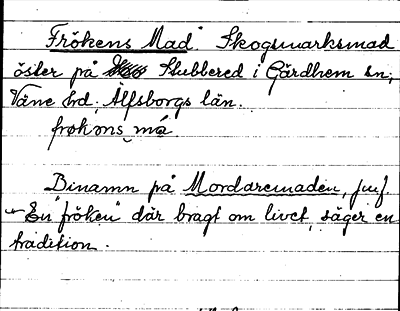 Frökens Mad. Skogsmarksmad
öster på Stubbered i Gärdhem sn,
Väne hd, Älfsborgs län.
frök ms må
Binamn på Morddremaden, jmf.
En "fröken" där bragt om livet, säger en
tradition.